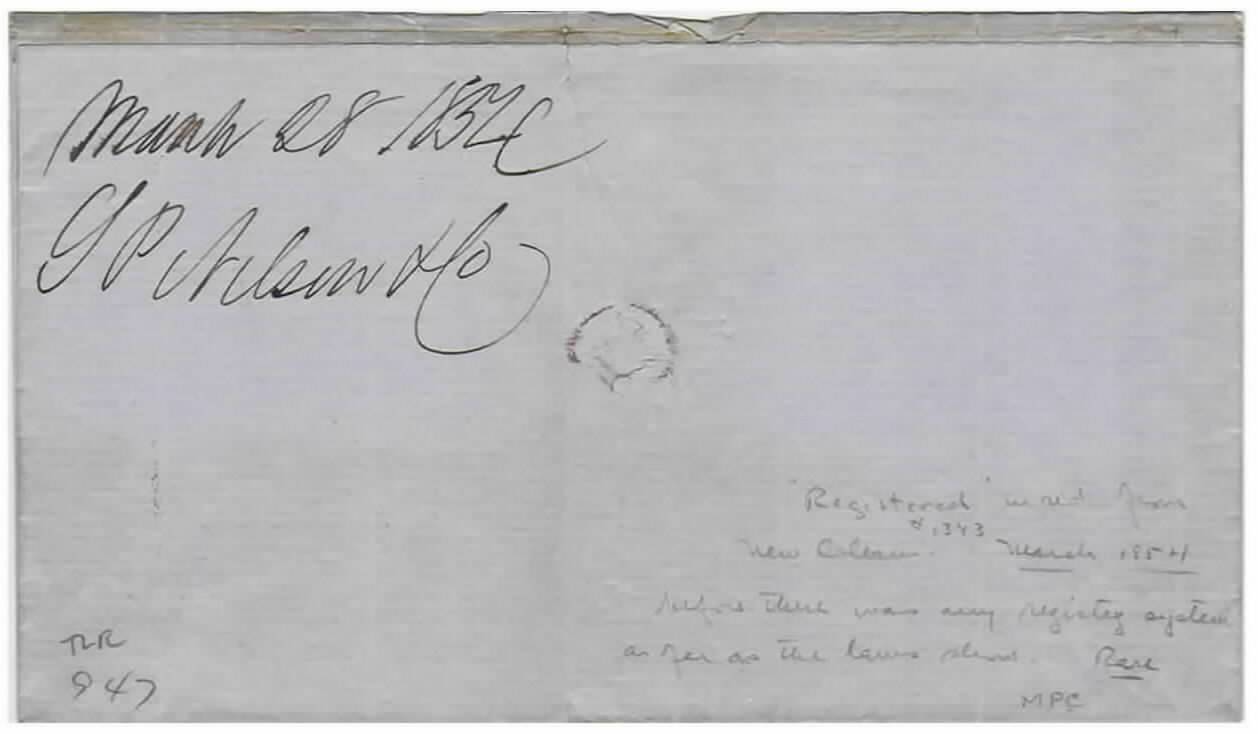 March 28 1854
G P Nelson & Co
"Registered" in red from
& 1343
New Orleans. March 1854
before there was any registry system
as far as the laws show. Rare
MPC
TLR
947